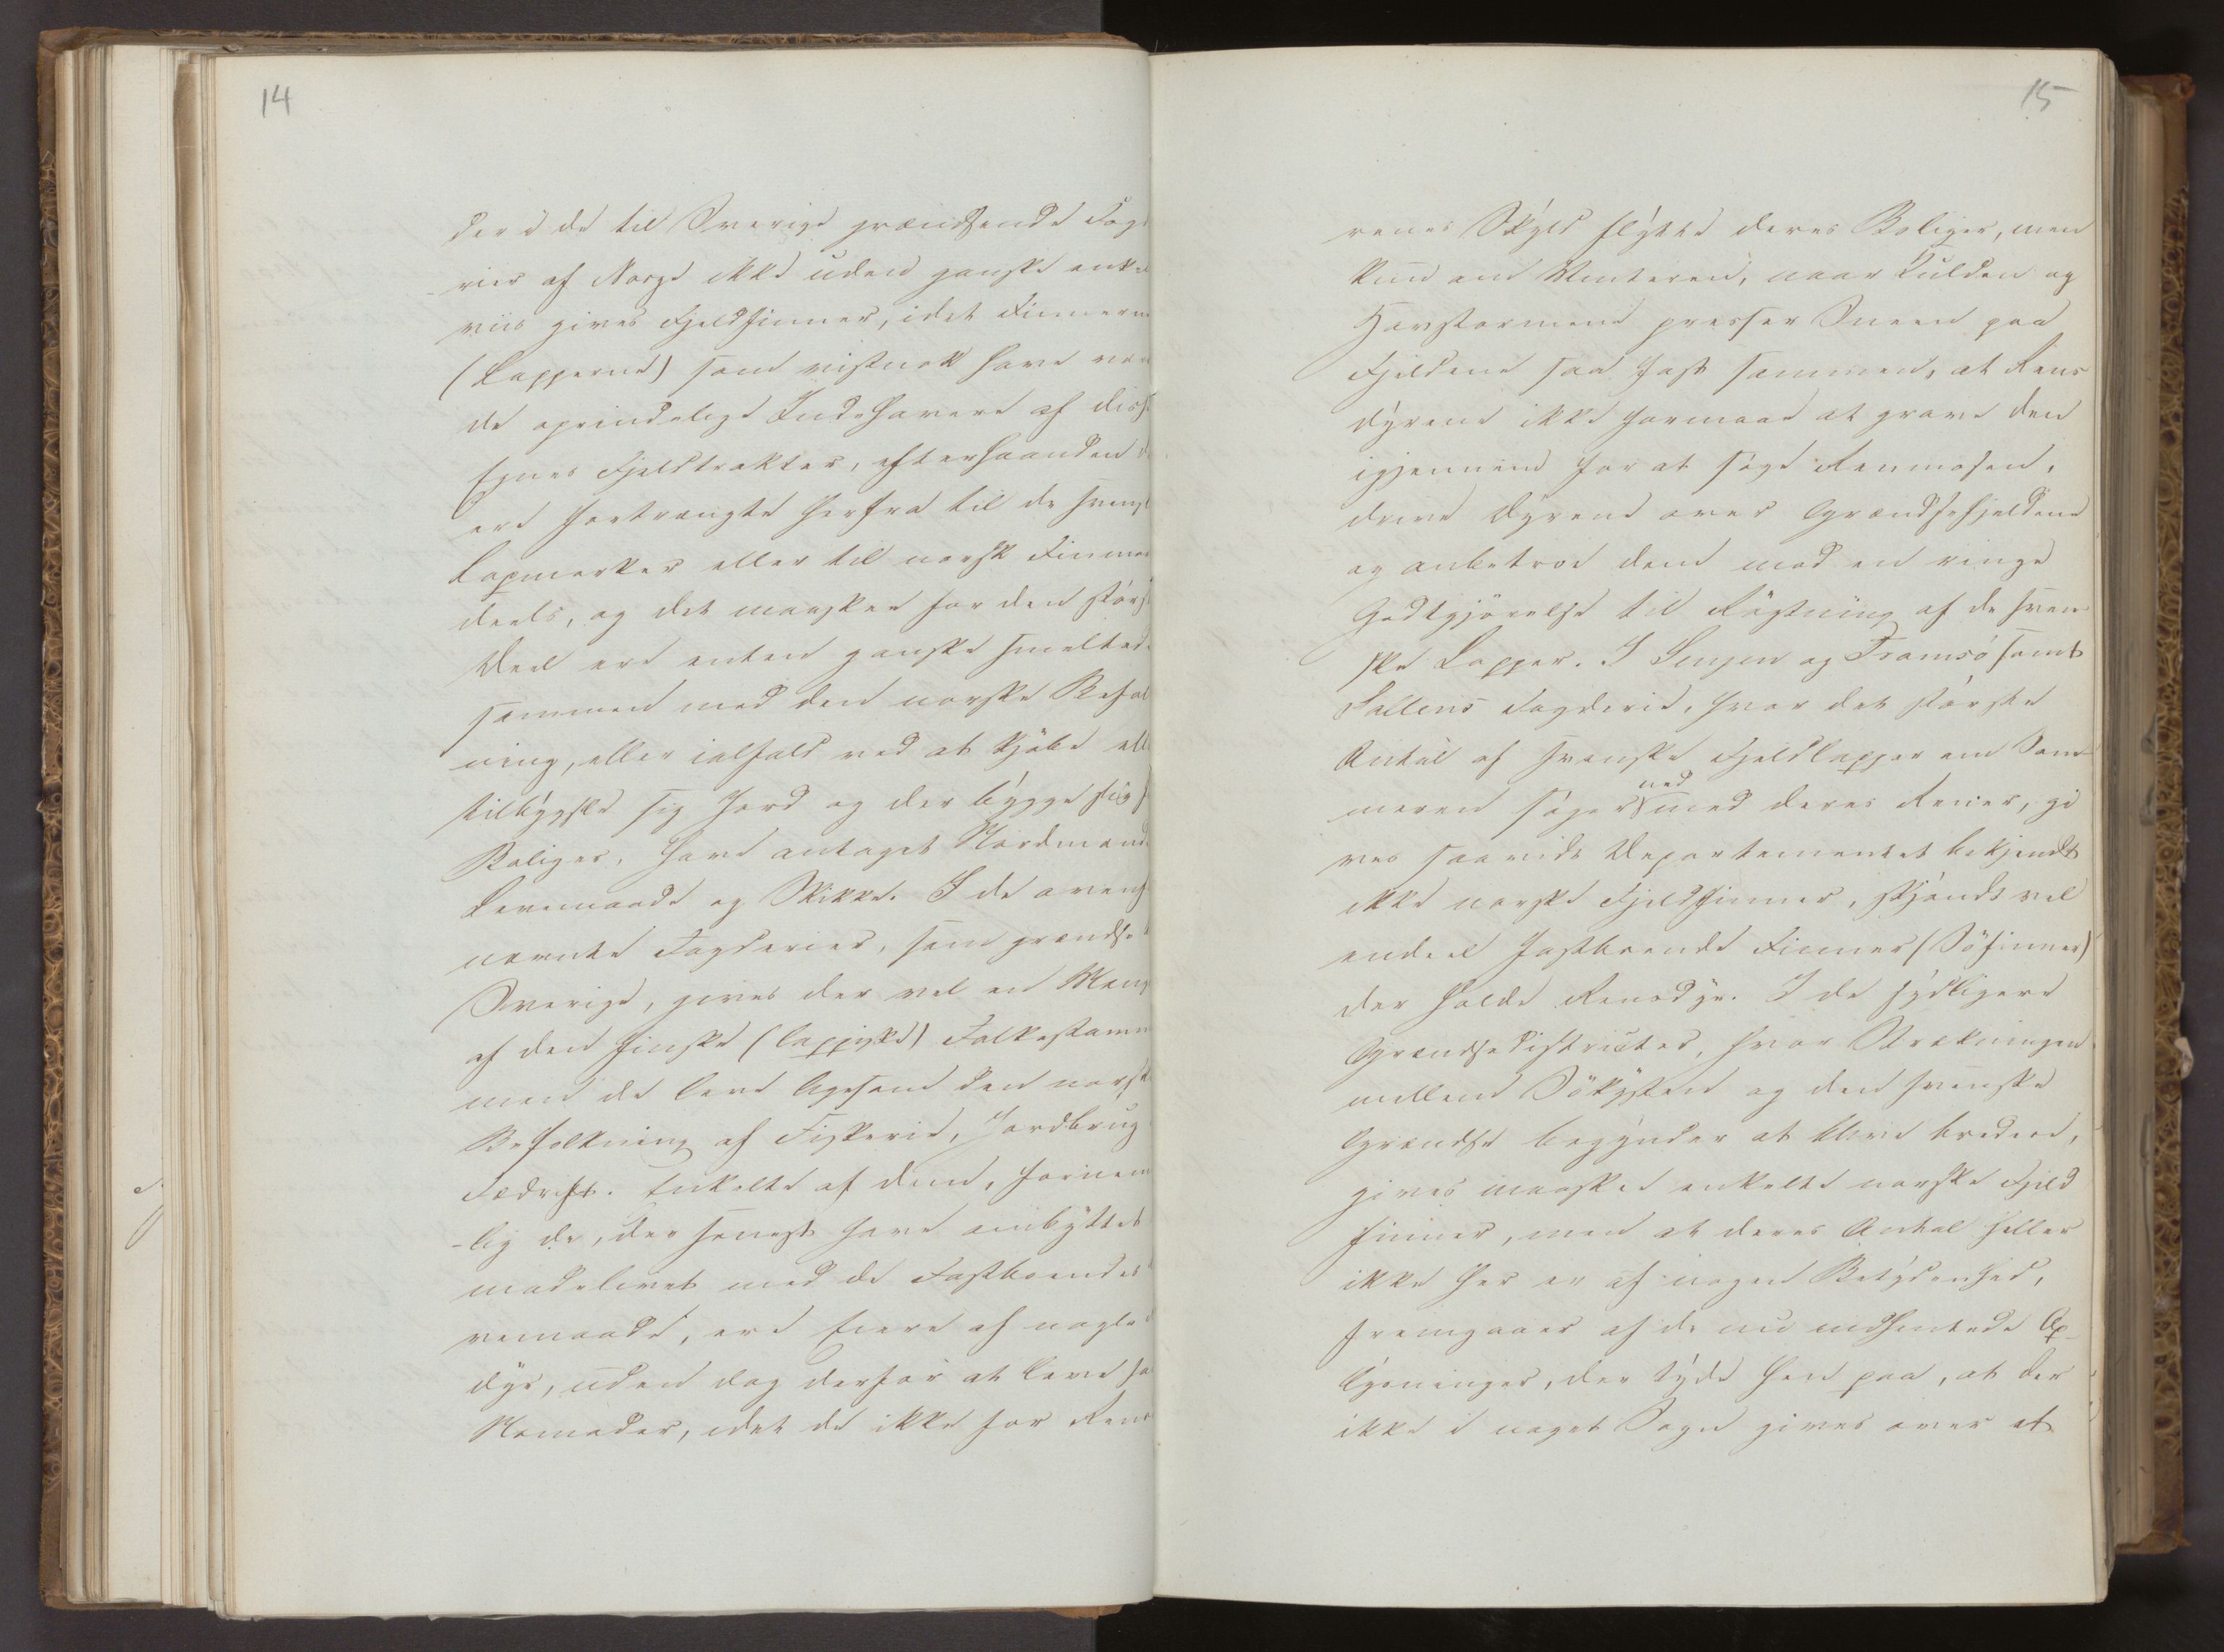 14
der i de til Sverige grændsende Fog
rier af Norge ikke uden ganske enkel
viis gives Fjeldfinner, idet Finnerne
(Lapperne) som vistnok have væ
de oprindelige Indehavere af disse
Egnes Fjeldtrakter, efterhaanden
ere fortrængte herfra til de svensk
Lapmarker eller til norsk Finmar
deels, og det maaskee for den störs
Deel ere enten ganske smeltede
sammen med den norske Befol
ning, eller ialfald ved at kjöbe elle
tilbygsle sig Jord og der bygge sig
Boliger, have antaget Nordmænd
Levemaade og Skikke. I de oven
nævnte Fogderier, som grændse
Sverige, gives der vel en Mæng
af den finske (lappiske) Folkestamm
men de leve ligesom den norsk
Befolkning af Fiskerie, Jordbrug
Fædrift. Enkelte af dem, fornem
-lig de, der senest have ombyttet
madelivet med de Fastboendes
vemaade, ere Eiere af nogle
dyr, uden dog derfor at leve so
Nomader, idet de ikke for Rens
15
renes Skyld flytte deres Boliger, men
kun om Vinteren, naar Kulden og
Havstormene presser Sneen paa
Fjeldene saa fast sammen, at Rens
dyrene ikke formaae at grave den
igjennem for at söge Renmosen,
drive Dyrene over Grændsefjeldene
og anbetroe dem mod en ringe
Godtgjörelse til Rögtning af de sven
ske Lapper. I Senjen og Tromsö samt
Saltens Fogderie, hvor det störste
Antal af svenske Fjeldlapper om Som
ned
meren söger med deres Rener, gi
ves saavidt Departementet bekjendt
ikke norske Fjeldfinner, skjöndt vel
endeel fastboende Finner (Söfinner)
der holde Rensdyr. I de sydligere
Grændsedistricter, hvor Strækningen
mellem Sökysten og den svenske
Grændse begynder at blive bredere,
gives maaskee enkelte norske Fjeld
finner, men at deres Antal heller
ikke her er af nogen Betydenhed,
fremgaaer af de nu indhentede Op
lysninger, der tyde hen paa, at der
ikke i noget Sogn gives over et